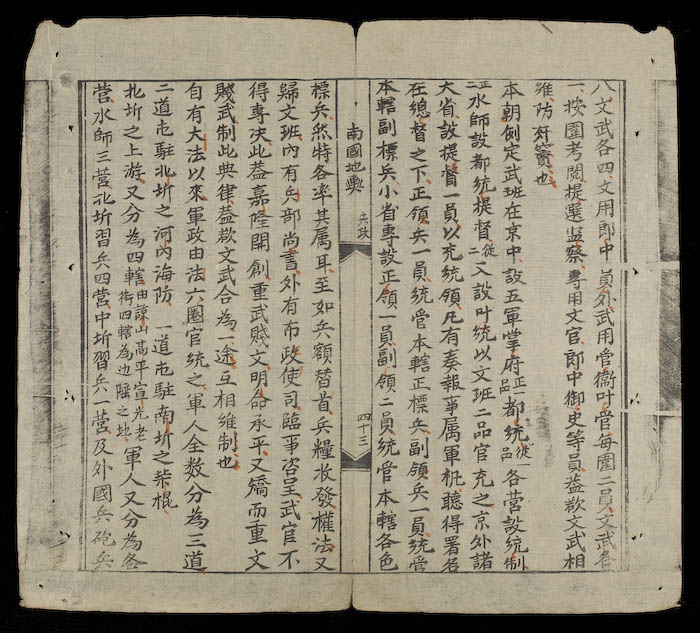 八文武各四文用郎中員外武用管衞叶管每圍二員文武各
一按圍考閱提選監察專用文官郎中御史等員葢欲文武相
維防奸竇也
本朝例定武班在京中設五軍掌府正一品都統從一品各營設統制
正二水師設都統提督從二入設叶統以文班二品官充之京外諸
大省設提督一員以充統領凡有奏報事属軍机聽得署名
在總督之下正領兵一員統管本轄正標兵副領兵一員統管
本轄副標兵小省專設正領一員副領二員統管本轄各色
南國地輿 兵政 四十三
標兵然特各率其属耳至如兵額替首兵糧收發權法又
歸文班內有兵部尚書外有布政使司臨事咨呈武官不
得專決此葢嘉隆開創重武賤文明命承平又矯而重文
賤武制此典律葢欲文武合為一途互相維制也
自有大法以來軍政由法六圈官統之軍人全数分為三道
二道屯駐北圻之河內海防 一道屯駐南圻之柴棍
北圻之上游又分為四轄由諒山高平宣光老街四轄為边隘之地軍人又分為各
营水師三营北圻習兵四营中圻習兵一营及外國兵砲兵